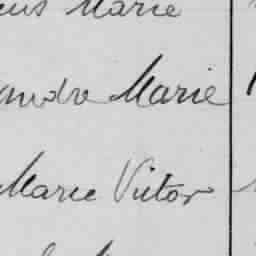 Marie
andre Marie
Marie Victor